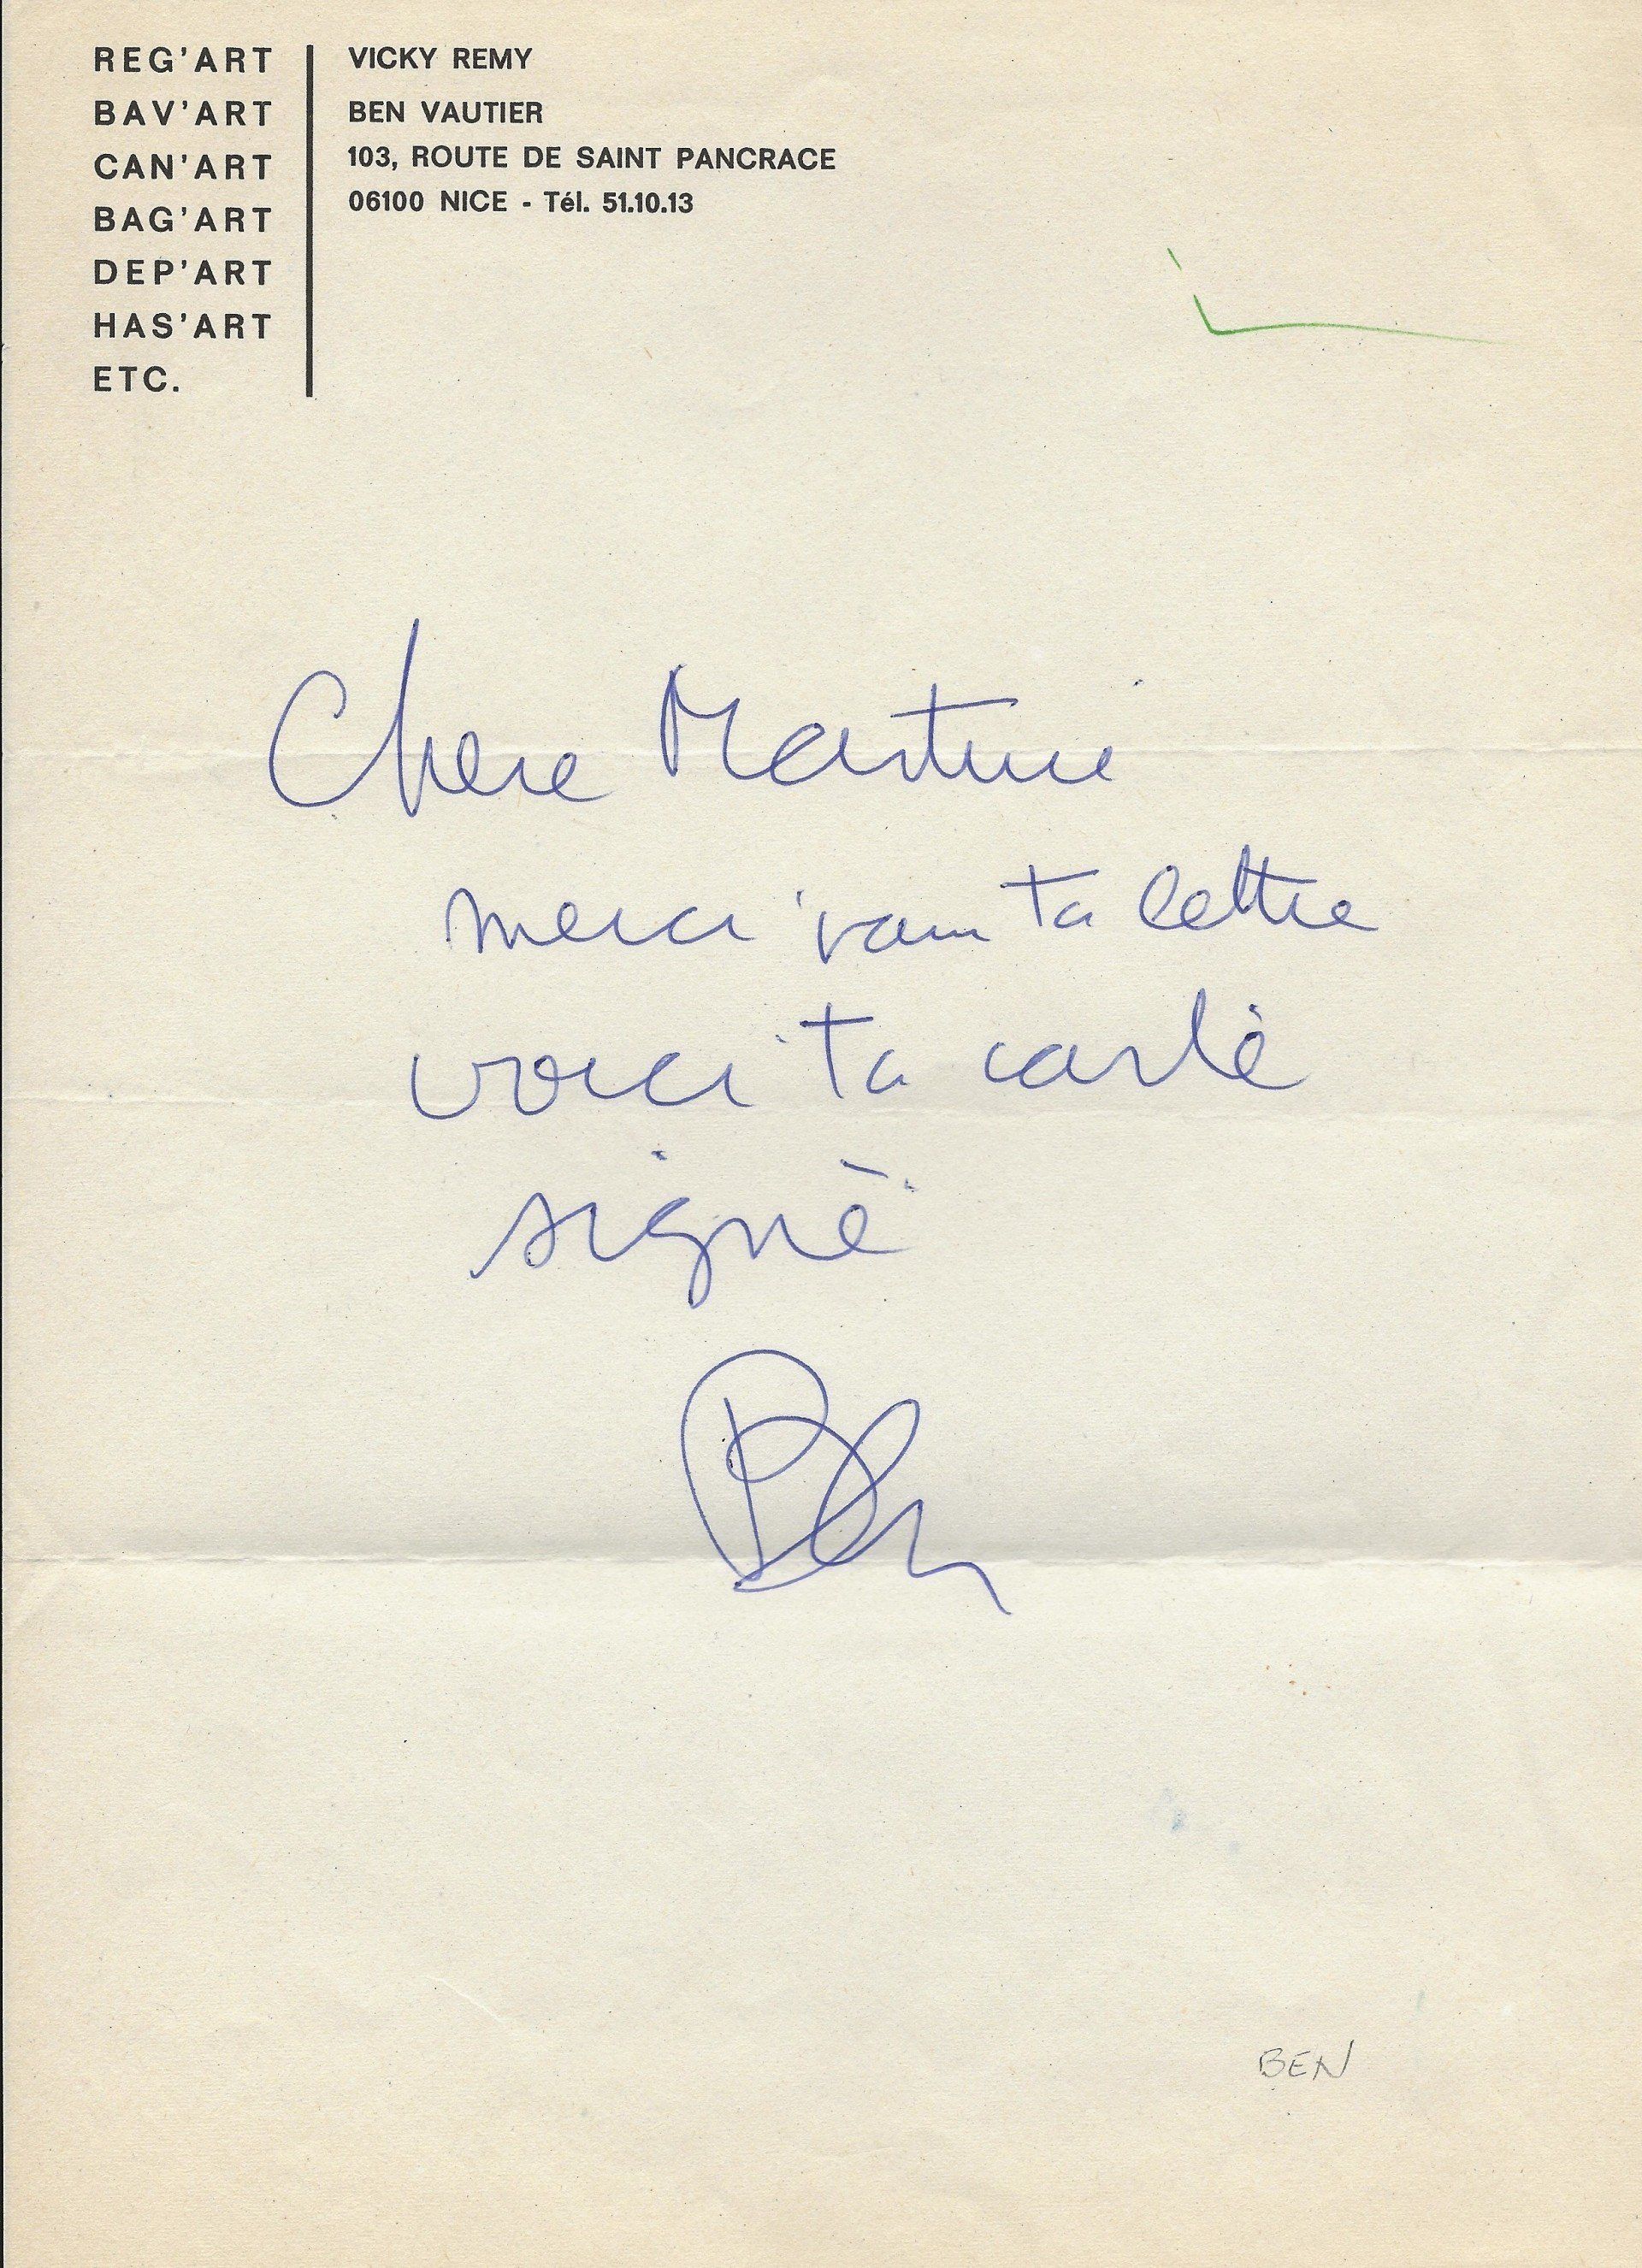 REG'ART
BAV'ART
CAN'ART
BAG'ART
DEP'ART
HAS'ART
ETC.
VICKY REMY
BEN VAUTIER
103, ROUTE DE SAINT PANCRACE
06100 NICE - Tél. 51.10.13
Chere Martine
merci pour ta lettre
voici ta carte
signé
Ben
BEN